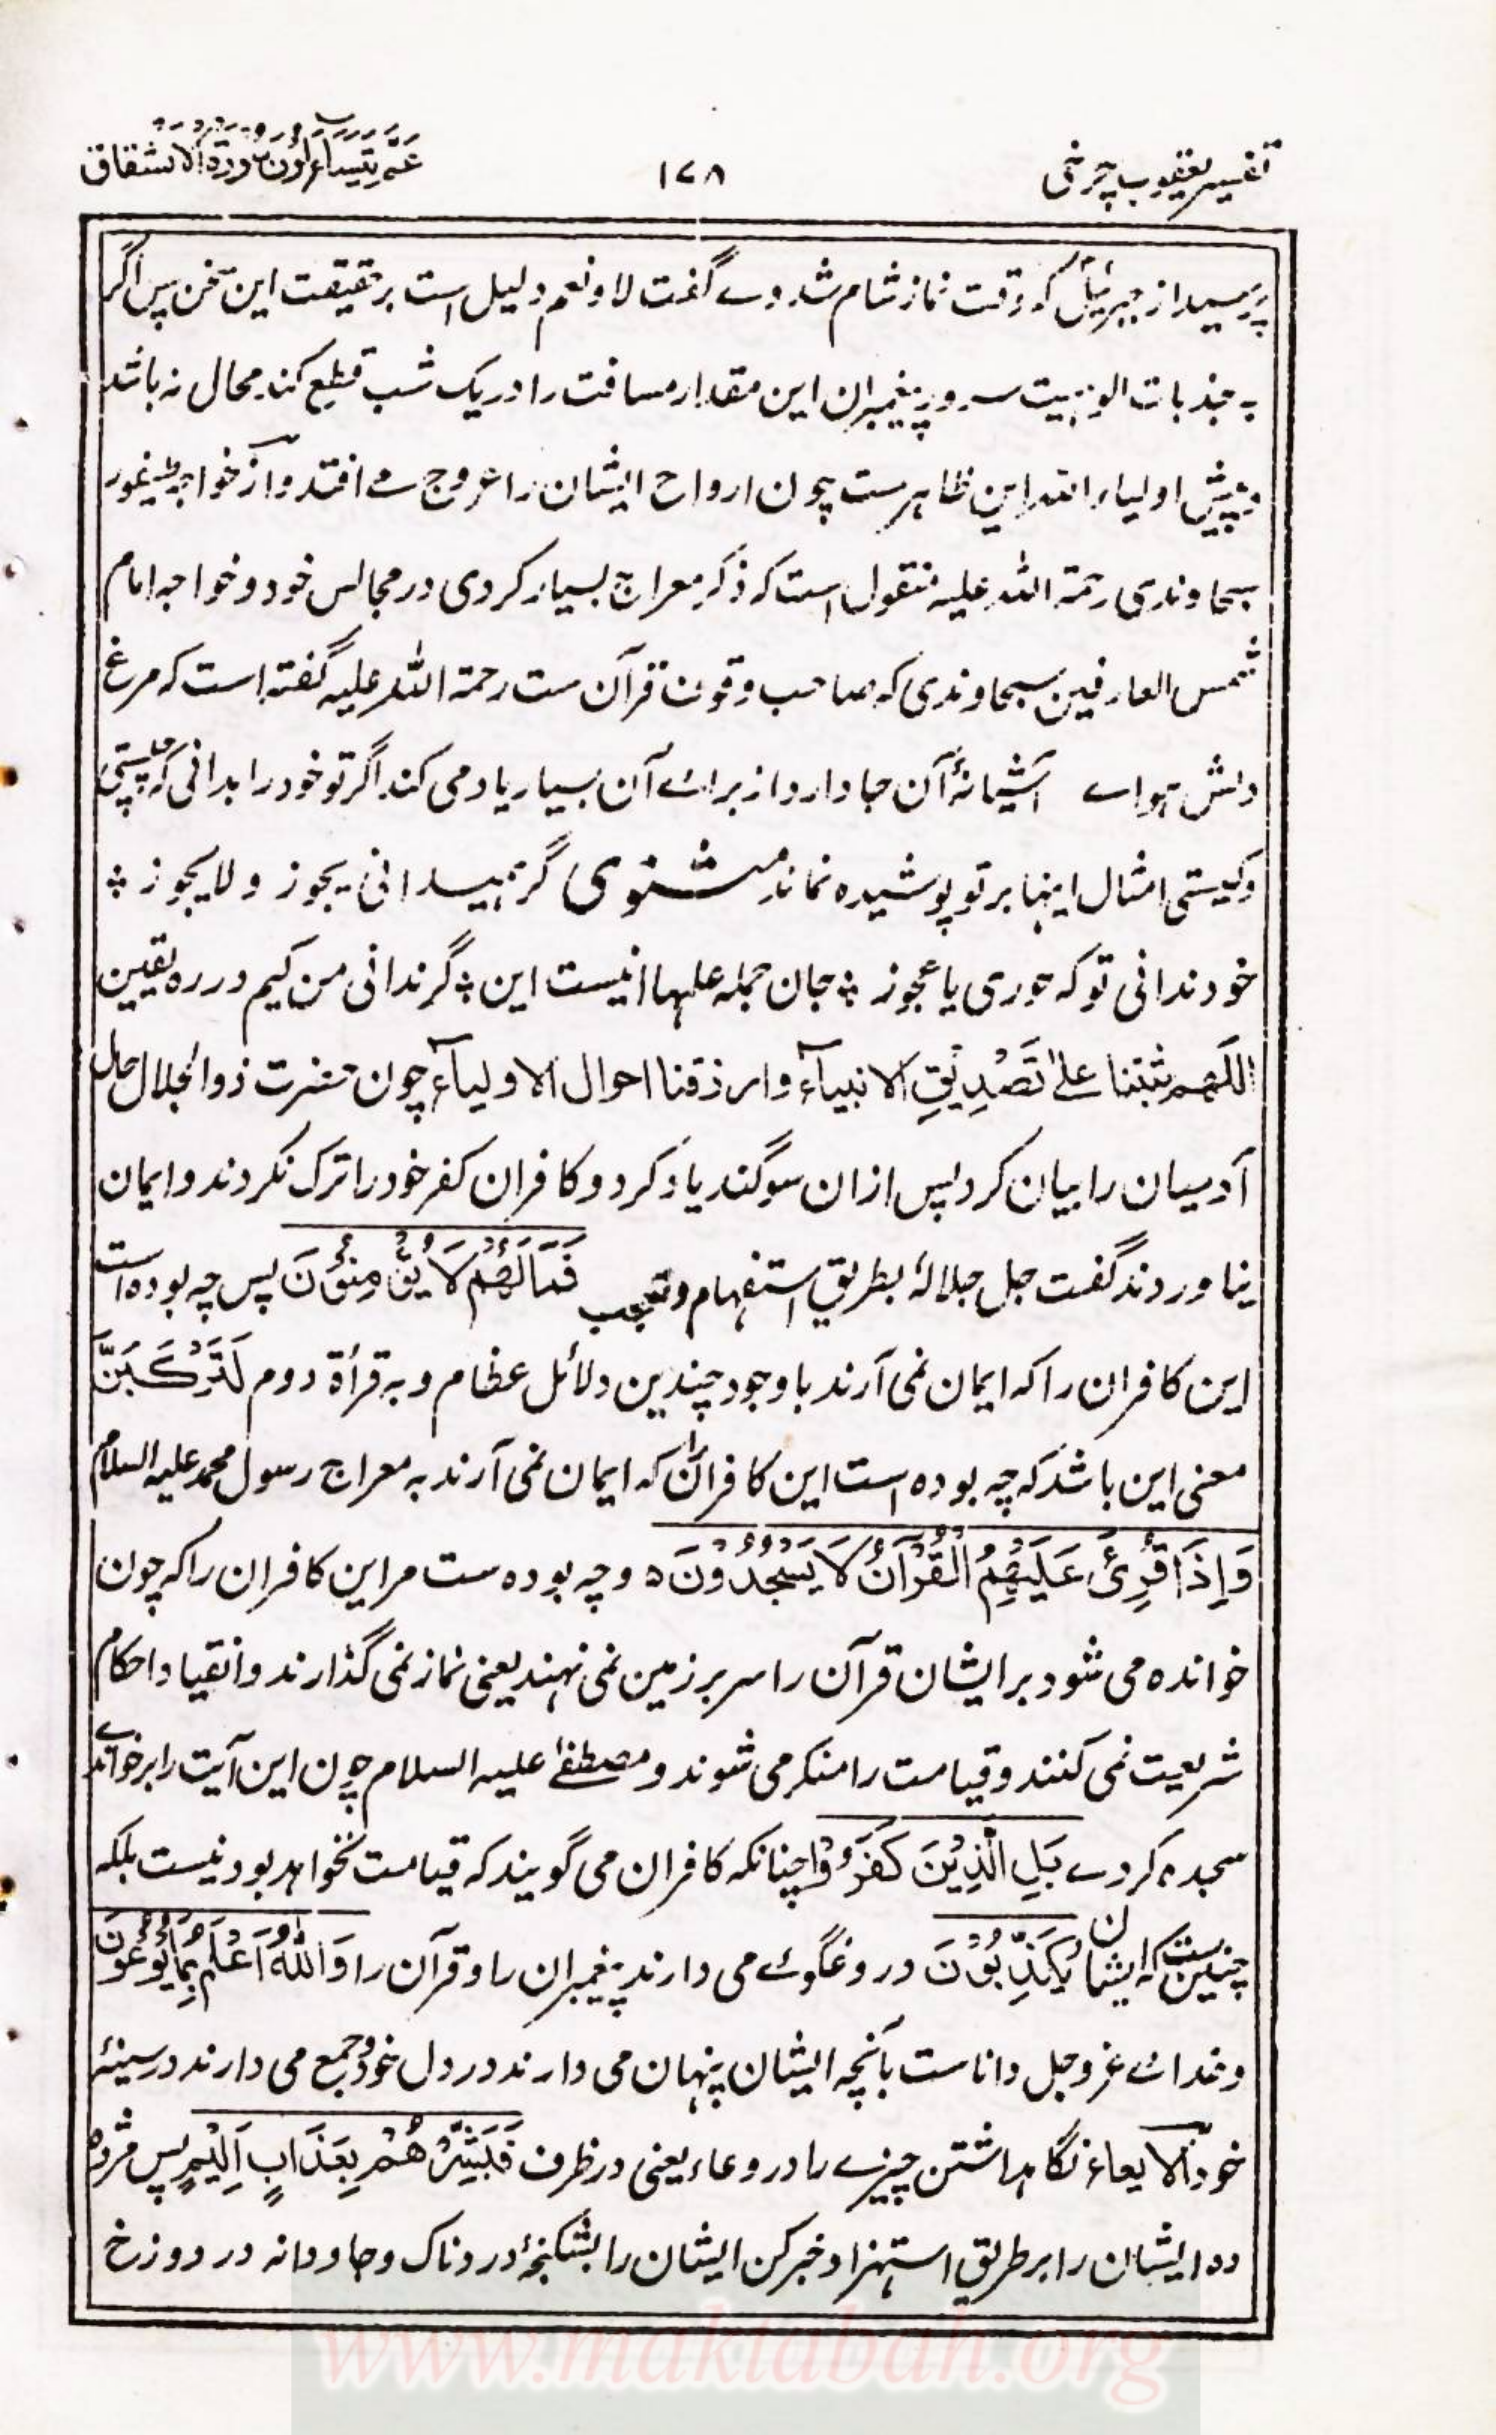 تفسیر یعقوب چرخی
۱۷۸
عَمَّ یَتَسَآءَلُوْنَ سورة الانشقاق
پرسید از جبرئیل کہ وقت نماز شام شد وے گفت لا و نعم دلیل است بر حقیقت این سخن پس اگر
بہ جذبات الوہیت سرور پیغمبران این مقدار مسافت را در یک شب قطع کند محال نہ باشد
و پیش اولیاء اللہ این ظاہر ست چون ارواح ایشان را عروج مے افتد و از خواجہ طیفور
سجاوندی رحمة اللہ علیہ منقول است کہ ذکر معراج بسیار کردی در مجالس خود و خواجہ امام
شمس العارفین سجاوندی کہ صاحب وقوف قرآن ست رحمة اللہ علیہ گفتہ است کہ مرغ
دلش ہواے آشیانۂ آن جا دارد از براے آن بسیار یاد می کند اگر تو خود را بدانی کہ چیستی
و کیستی امثال اینہا بر تو پوشیدہ نماند مثنوی گر ہمیدانی یجوز و لا یجوز ؞
خود ندانی تو کہ حوری یا عجوز ؞ جان جملہ علمہا اینست این ؞ گر ندانی من کیم در رہ یقین
اللّٰهم ثبتنا علیٰ تَصْدِیْقِ الانبیآء وارزقنا احوال الاولیآء چون حضرت ذوالجلال حال
آدمیان را بیان کرد پس ازان سوگند یاد کرد و کافران کفر خود را ترک نکردند و ایمان
نیاوردند گفت جل جلالہٗ بطریق استفہام و تعجب فَمَا لَهُمْ لَا یُؤْمِنُوْنَ پس چہ بودہ است
این کافران را کہ ایمان نمی آرند باوجود چندین دلائل عظام و بہ قرأة دوم لَتَرْكَبَنَّ
معنی این باشد کہ چہ بودہ است این کافران را کہ ایمان نمی آرند بہ معراج رسول محمد علیہ السلام
وَاِذَا قُرِئَ عَلَیْهِمُ الْقُرْآنُ لَا یَسْجُدُوْنَ ہ و چہ بودہ ست مر این کافران را کہ چون
خواندہ می شود بر ایشان قرآن را سر بر زمین نمی نہند یعنی نماز نمی گذارند و انقیاد احکام
شریعت نمی کنند و قیامت را منکر می شوند و مصطفےٰ علیہ السلام چون این آیت را بر خواندے
سجدہ کردے بَلِ الَّذِیْنَ كَفَرُوْا چنانکہ کافران می گویند کہ قیامت نخواہد بود نیست بلکہ
چنین ست کہ ایشان یُكَذِّبُوْنَ دروغگوے می دارند پیغمبران را و قرآن را وَاللّٰهُ اَعْلَمُ بِمَا یُوْعُوْنَ
و خداے عز و جل دانا ست بآنچہ ایشان پنہان می دارند در دل خود و جمع می دارند در سینۂ
خود الایعاء نگاہداشتن چیزے را در وعاء یعنی در ظرف فَبَشِّرْهُمْ بِعَذَابٍ اَلِیْمٍ پس مژدہ
دہ ایشان را بر طریق استہزا و خبر کن ایشان را بشکنجۂ دردناک و جاودانہ در دوزخ
www.maktabah.org